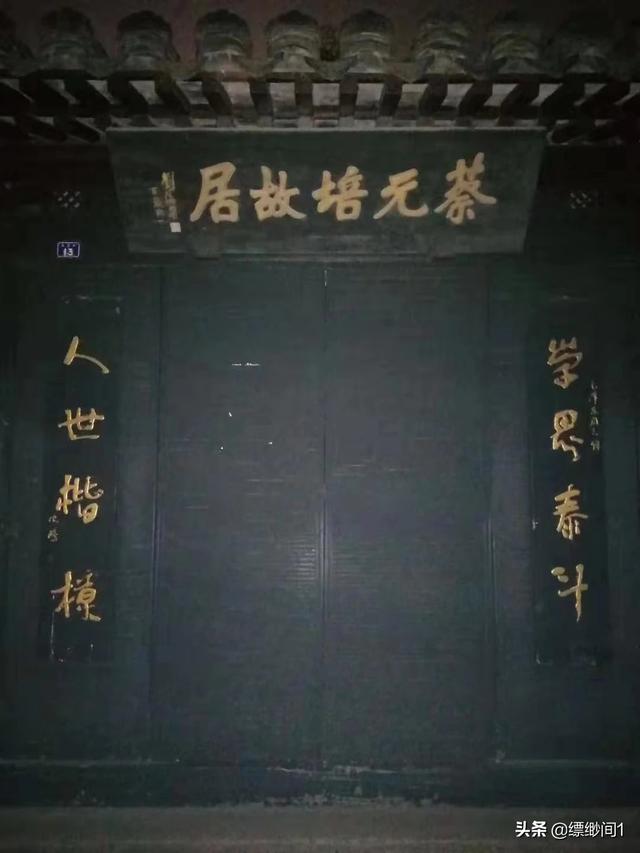 蔡元培故居
13
学界泰斗
人世楷模
头条 @缥缈间1